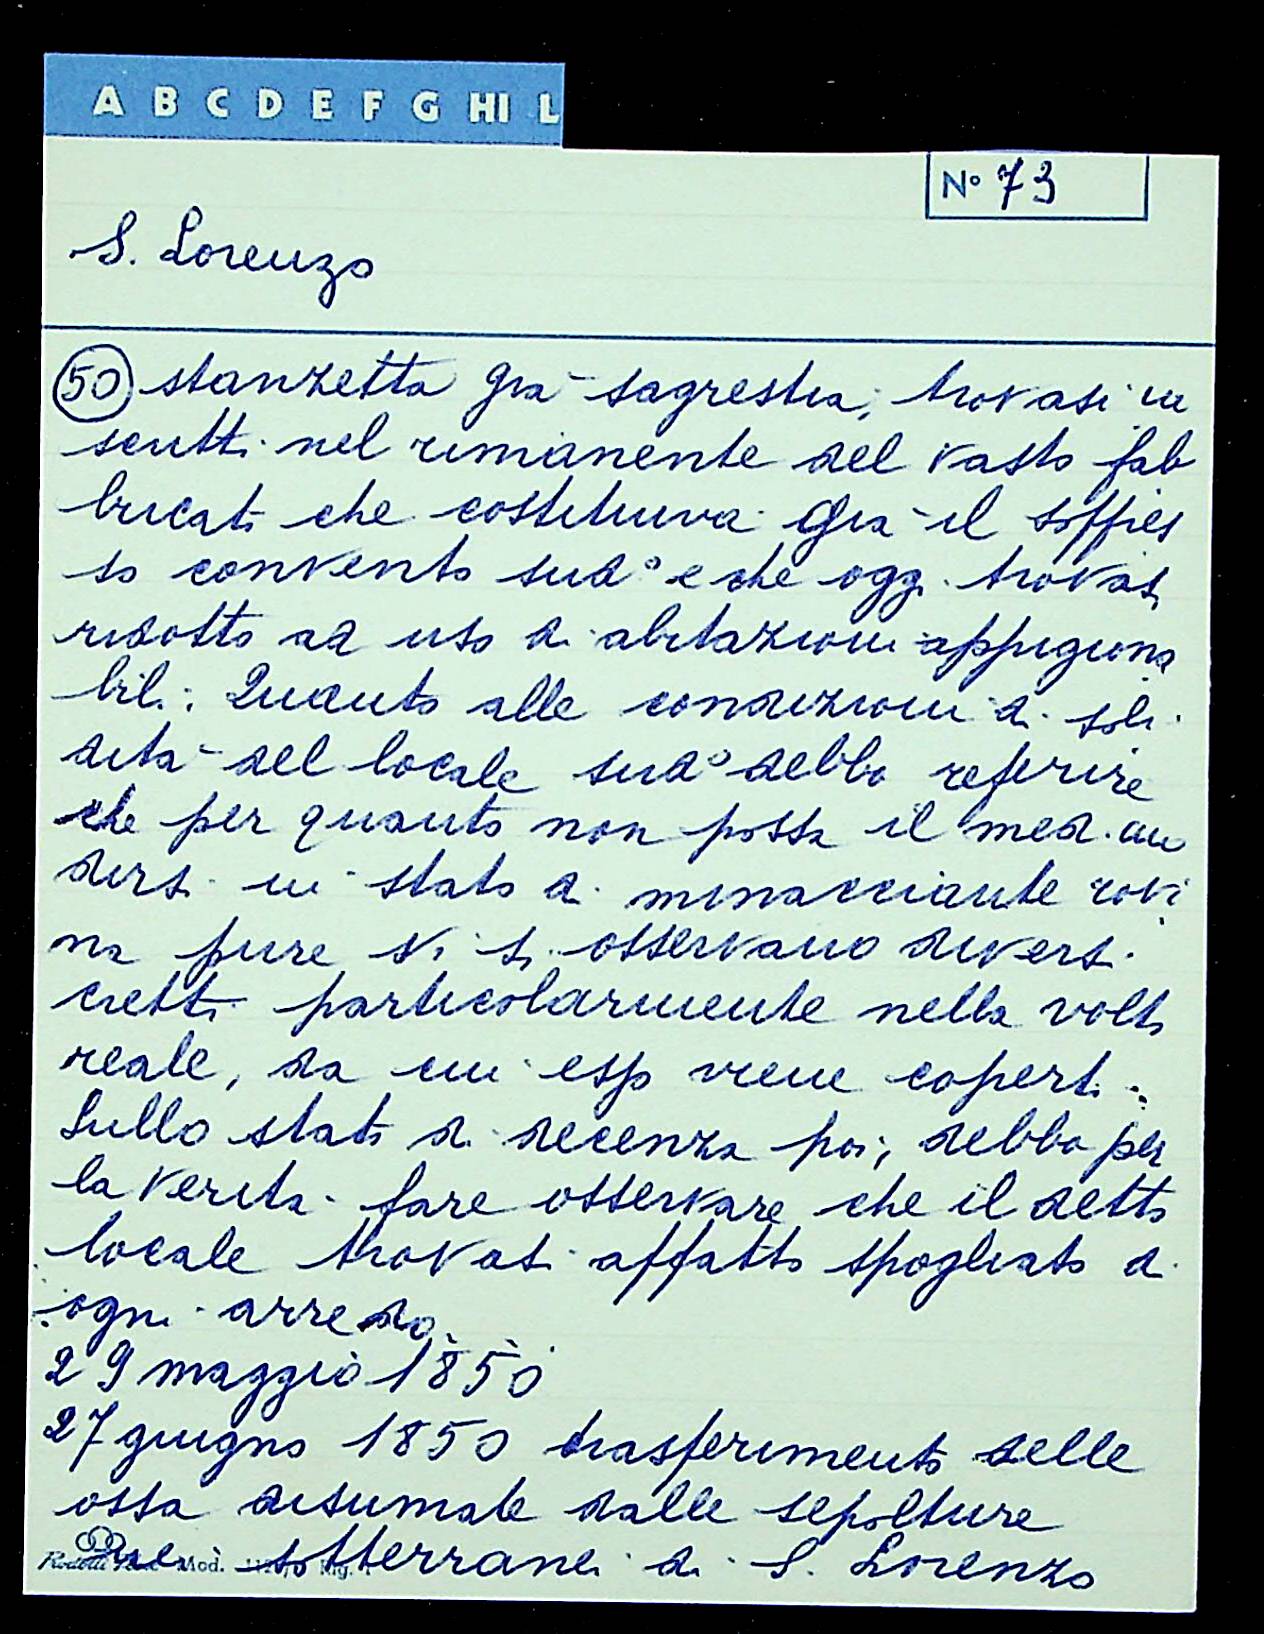 A B C D E F G HI L
N° 73
S. Lorenzo
50 stanzetta già sagrestia, trovasi in
scritti nel rimanente del vasto fab
bricato che costituiva già il soppres
so convento sud° e che oggi trovasi
ridotto ad uso di abitazioni appigiona
bili. Quanto alle condizioni di soli
dità del locale sud° debbo referire
che per quanto non possa il med. an
dirsi in stato di minacciante rovi
na pure vi si osservano diversi
cretti particolarmente nella volta
reale, da cui esso viene coperto.
Sullo stato di decenza poi, debbo per
la verità fare osservare che il detto
locale trovasi affatto spogliato di
ogni arredo.
29 maggio 1850
27 giugno 1850 trasferimento delle
ossa disumate dalle sepolture
sotterranei di S. Lorenzo
Mod.